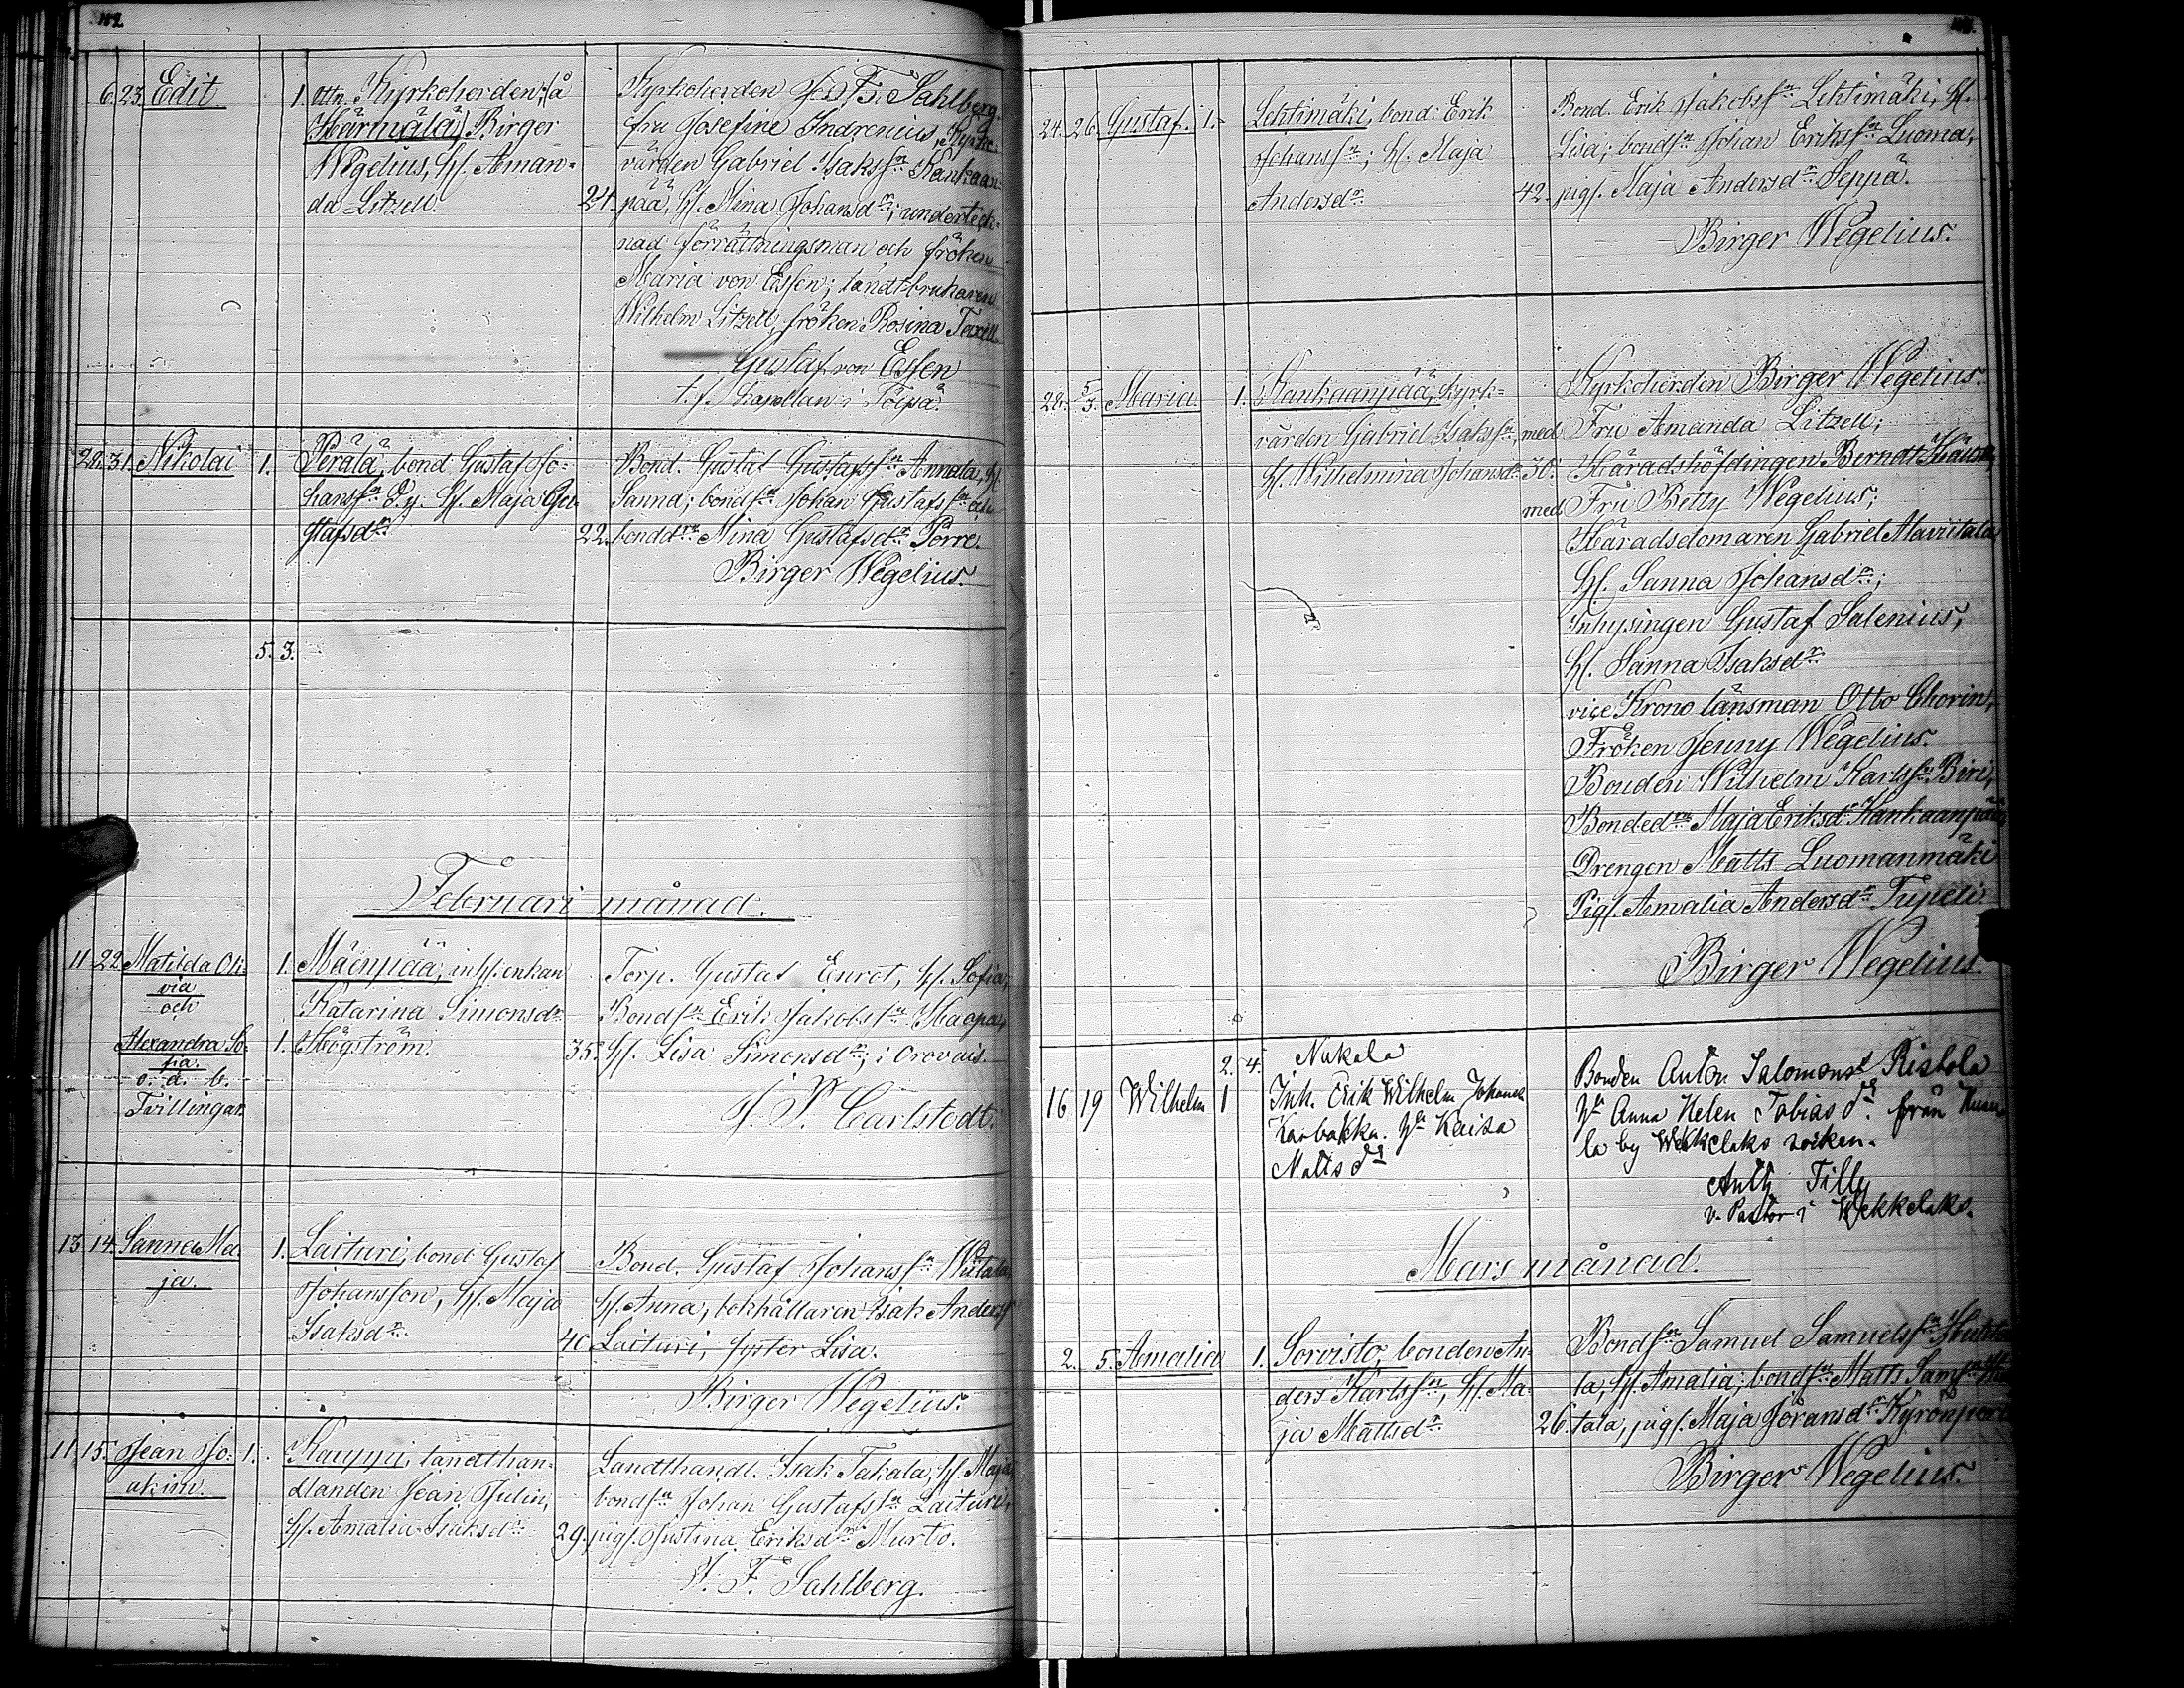 112.
6. 23. Edit 1. Kyrkoherden, å
Härmälä, Birger
Wegelius, H. Aman-
da Litzell.
24.
Kyrkoherden J. F. Sahlberg,
fru Josefine Indrenius, Kyrko-
värden Gabriel Isaksson Kankaan-
pää, H. Mina Johansdr; underteck-
nad förrättningsman och fröken
Maria von Essen; landtbrukaren
Wilhelm Litzell, fröken Rosina
Gustaf von Essen
t. f. kapellan i Töysä.
28. 31. Nikolai 1. Perälä, bond. Gustaf Jo-
hanss. d.y. H. Maja Gu-
stafsdr.
22.
Bond. Gustaf Gustafss. Annala, H.
Sanna; bonds. Johan Gustafss. och
bonddr. Mina Gustafsdr. Porre.
Birger Wegelius.
5. 3.
Februari månad.
11 22 Matilda Oli-
via
och
Alexandra So-
fia.
o. ä. b.
Tvillingar.
1. Mäenpää, enkan
Katarina Simonsdr
1. Högström.
35.
Torp. Gustaf Enrot, H. Sofia,
Bonds. Erik Jakobss. Haapa,
H. Lisa Simonsdr; i Orovais.
J. W. Carlstedt.
13. 14. Sanna Ma-
ja.
1. Laituri, bond. Gustaf
Johansson, H. Maja
Isaksdr.
40.
Bond. Gustaf Johanss. Witala,
H. Anna, bokhållaren Isak Anderss.
Laituri, syster Lisa.
Birger Wegelius.
11. 15. Jean Jo-
akim.
1. Kauppi, landthan-
dlanden Jean Julin,
H. Amalia Isaksdr.
29.
Landthandl. Isak Takala, H. Maja
bonds. Johan Gustafss. Laituri,
pig. Justina Eriksdr. Murto.
J. F. Sahlberg.
24. 26. Gustaf. 1. Lehtimäki, bond: Erik
Johanss.; H. Maja
Andersdr.
42.
Bond. Erik Jakobss. Lehtimäki, H.
Lisa; bonds. Johan Erikss. Luoma,
pig. Maja Andersdr. Seppä.
Birger Wegelius.
28. 5/3. Maria 1. Kankaanpää, kyrk-
värden Gabriel Isakss. med
H. Wilhelmina Johansdr.
30.
Kyrkoherden Birger Wegelius.
Fru Amanda Litzell;
Häradshöfdingen Berndt
med Fru Betty Wegelius;
Häradsdomaren Gabriel Alavitala
H. Sanna Johansdr.;
Inhysingen Gustaf Salenius,
H. Sanna Isaksdr.
vice Krono länsman Otto Thorin,
Fröken Jenny Wegelius.
Bonden Wilhelm Karlss. Biri,
Bondedr. Maja Eriksdr. Kankaanpää
Drengen Matts Luomanmäki
Pig. Amalia Andersdr. Tupeli
Birger Wegelius.
2. 4.
16 19 Wilhelm 1 Nukala
Inh. Erik Wilhelm Johanss.
H. Kaisa
Matts dr
Bonden Anton Salomonss. Ristola
H. Anna Helen Tobias dr. från
la by Wekkelaks socken.
Anth Tilly
v. Pastor i Wekkelaks.
Mars månad.
2. 5. Amalia 1. Sorvisto, bonden An-
ders Karlss., H. Ma-
ja Mattsdr.
26.
Bonds. Samuel Samuelss. Huhta-
la, H. Amalia; bonds. Matts Sams.
tala, pig. Maja Göransdr. Kyrönpää
Birger Wegelius.